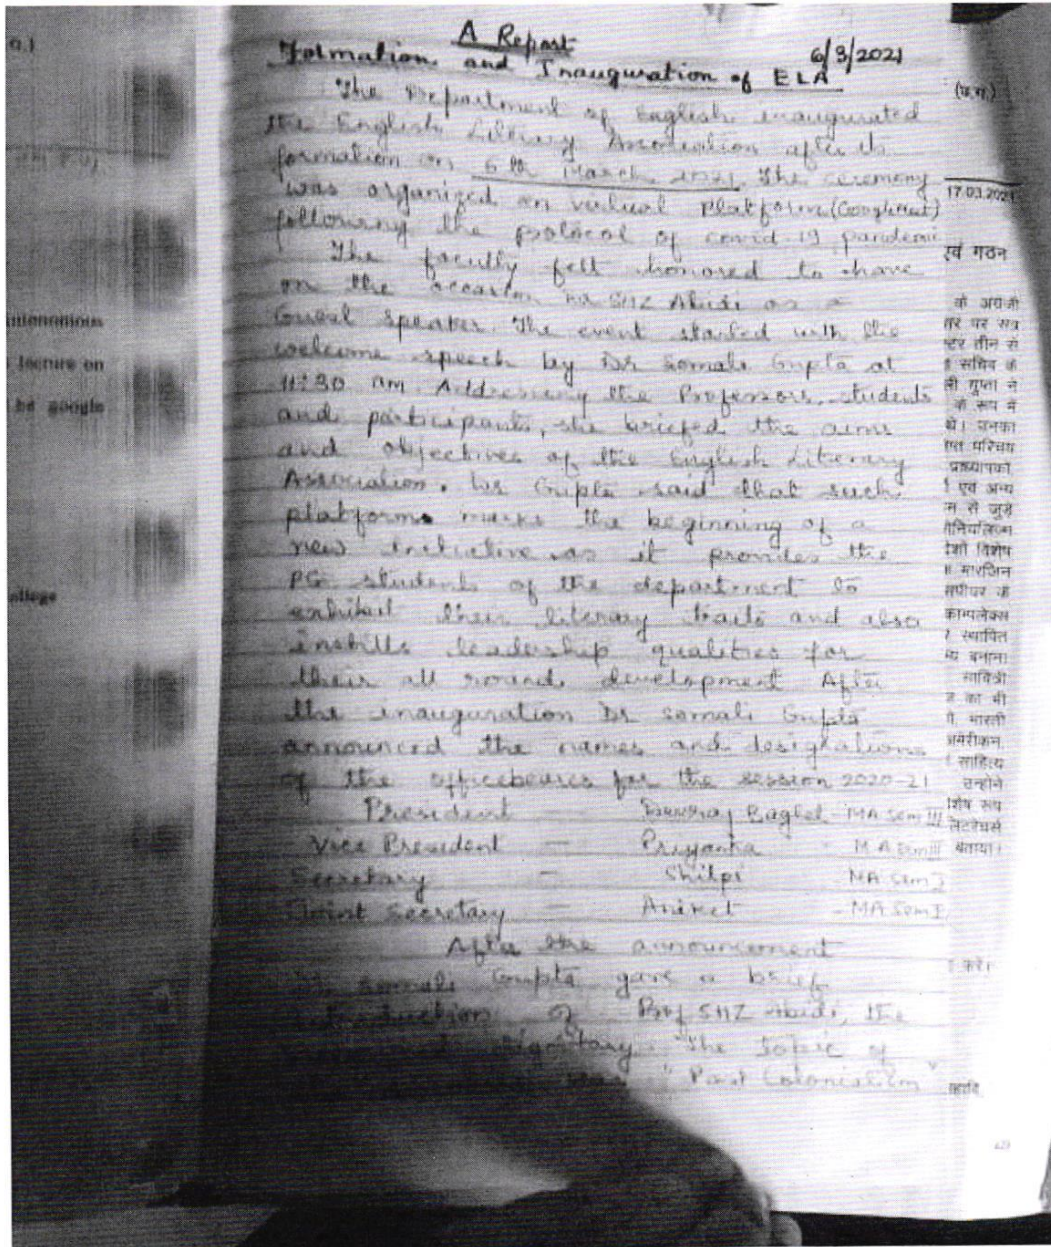 A Report
6/3/2021
Formation and Inauguration of ELA
The Department of English inaugurated
the English Literary Association after its
formation on 6th March 2021. The ceremony
was organized on virtual Platform (GoogleMeet)
following the protocol of covid-19 pandemic
The faculty felt honored to have
on the occasion SHZ Abidi as a
Guest Speaker. The event started with the
welcome speech by Dr Somali Gupta at
11:30 am. Addressing the Professors, students
and participants, she briefed the aims
and objectives of the English Literary
Association. Dr Gupta said that such
platforms marks the beginning of a
new initiative as it provides the
PG students of the department to
exhibit their literary traits and also
instills leadership qualities for
their all round development After
the inauguration Dr Somali Gupta
announced the names and designations
of the officebeares for the session 2020-21
President - Baghel - MA Sem III
Vice President - Priyanka - MA Sem III
Secretary - Shilpi - MA Sem I
Joint Secretary - Aniket - MA Sem I
After the announcement
Dr Somali Gupta gave a brief
introduction of Prof SHZ Abidi, the
dignitary. The Topic of
was "Post Colonialism"
utonomous
lecture on
be google
ollege
17.03.2021
एवं गठन
के अंग्रेजी
सचिव के
गुप्ता ने
के रूप में
थे। उनका
परिचय
प्राध्यापकों
एवं अन्य
से जुड़े
विशेष
काम्पलेक्स
स्थापित
बनाना
सावित्री
का भी
भारती
अमेरीकन,
साहित्य
उन्होंने
रूप
बताया।